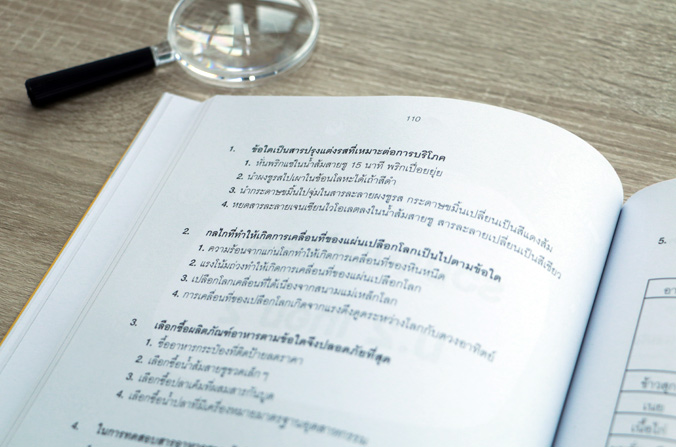 110
1. ข้อใดเป็นสารปรุงแต่งรสที่เหมาะต่อการบริโภค
1. หั่นพริกแช่ในน้ำส้มสายชู 15 นาที พริกเปื่อยยุ่ย
2. นำผงชูรสไปเผาในช้อนโลหะได้เถ้าสีดำ
3. นำกระดาษขมิ้นไปจุ่มในสารละลายผงชูรส กระดาษขมิ้นเปลี่ยนเป็นสีแดงส้ม
4. หยดสารละลายเจนเชียนไวโอเลตลงในน้ำส้มสายชู สารละลายเปลี่ยนเป็นสีเขียว
2. กลไกที่ทำให้เกิดการเคลื่อนที่ของแผ่นเปลือกโลกเป็นไปตามข้อใด
1. ความร้อนจากแก่นโลกทำให้เกิดการเคลื่อนที่ของหินหนืด
2. แรงโน้มถ่วงทำให้เกิดการเคลื่อนที่ของแผ่นเปลือกโลก
3. เปลือกโลกเคลื่อนที่ได้เนื่องจากสนามแม่เหล็กโลก
4. การเคลื่อนที่ของเปลือกโลกเกิดจากแรงดึงดูดระหว่างโลกกับดวงอาทิตย์
3. เลือกซื้อผลิตภัณฑ์อาหารตามข้อใดจึงปลอดภัยที่สุด
1. ซื้ออาหารกระป๋องที่ติดป้ายลดราคา
2. เลือกซื้อน้ำส้มสายชูขวดเล็กๆ
3. เลือกซื้อปลาเค็มที่ผสมสารกันบูด
4. เลือกซื้อน้ำปลาที่มีเครื่องหมายมาตรฐานอุตสาหกรรม
4. ในการทดสอบสารอาหาร
5.
ข้าวสุก
เนย
เนื้อไก่